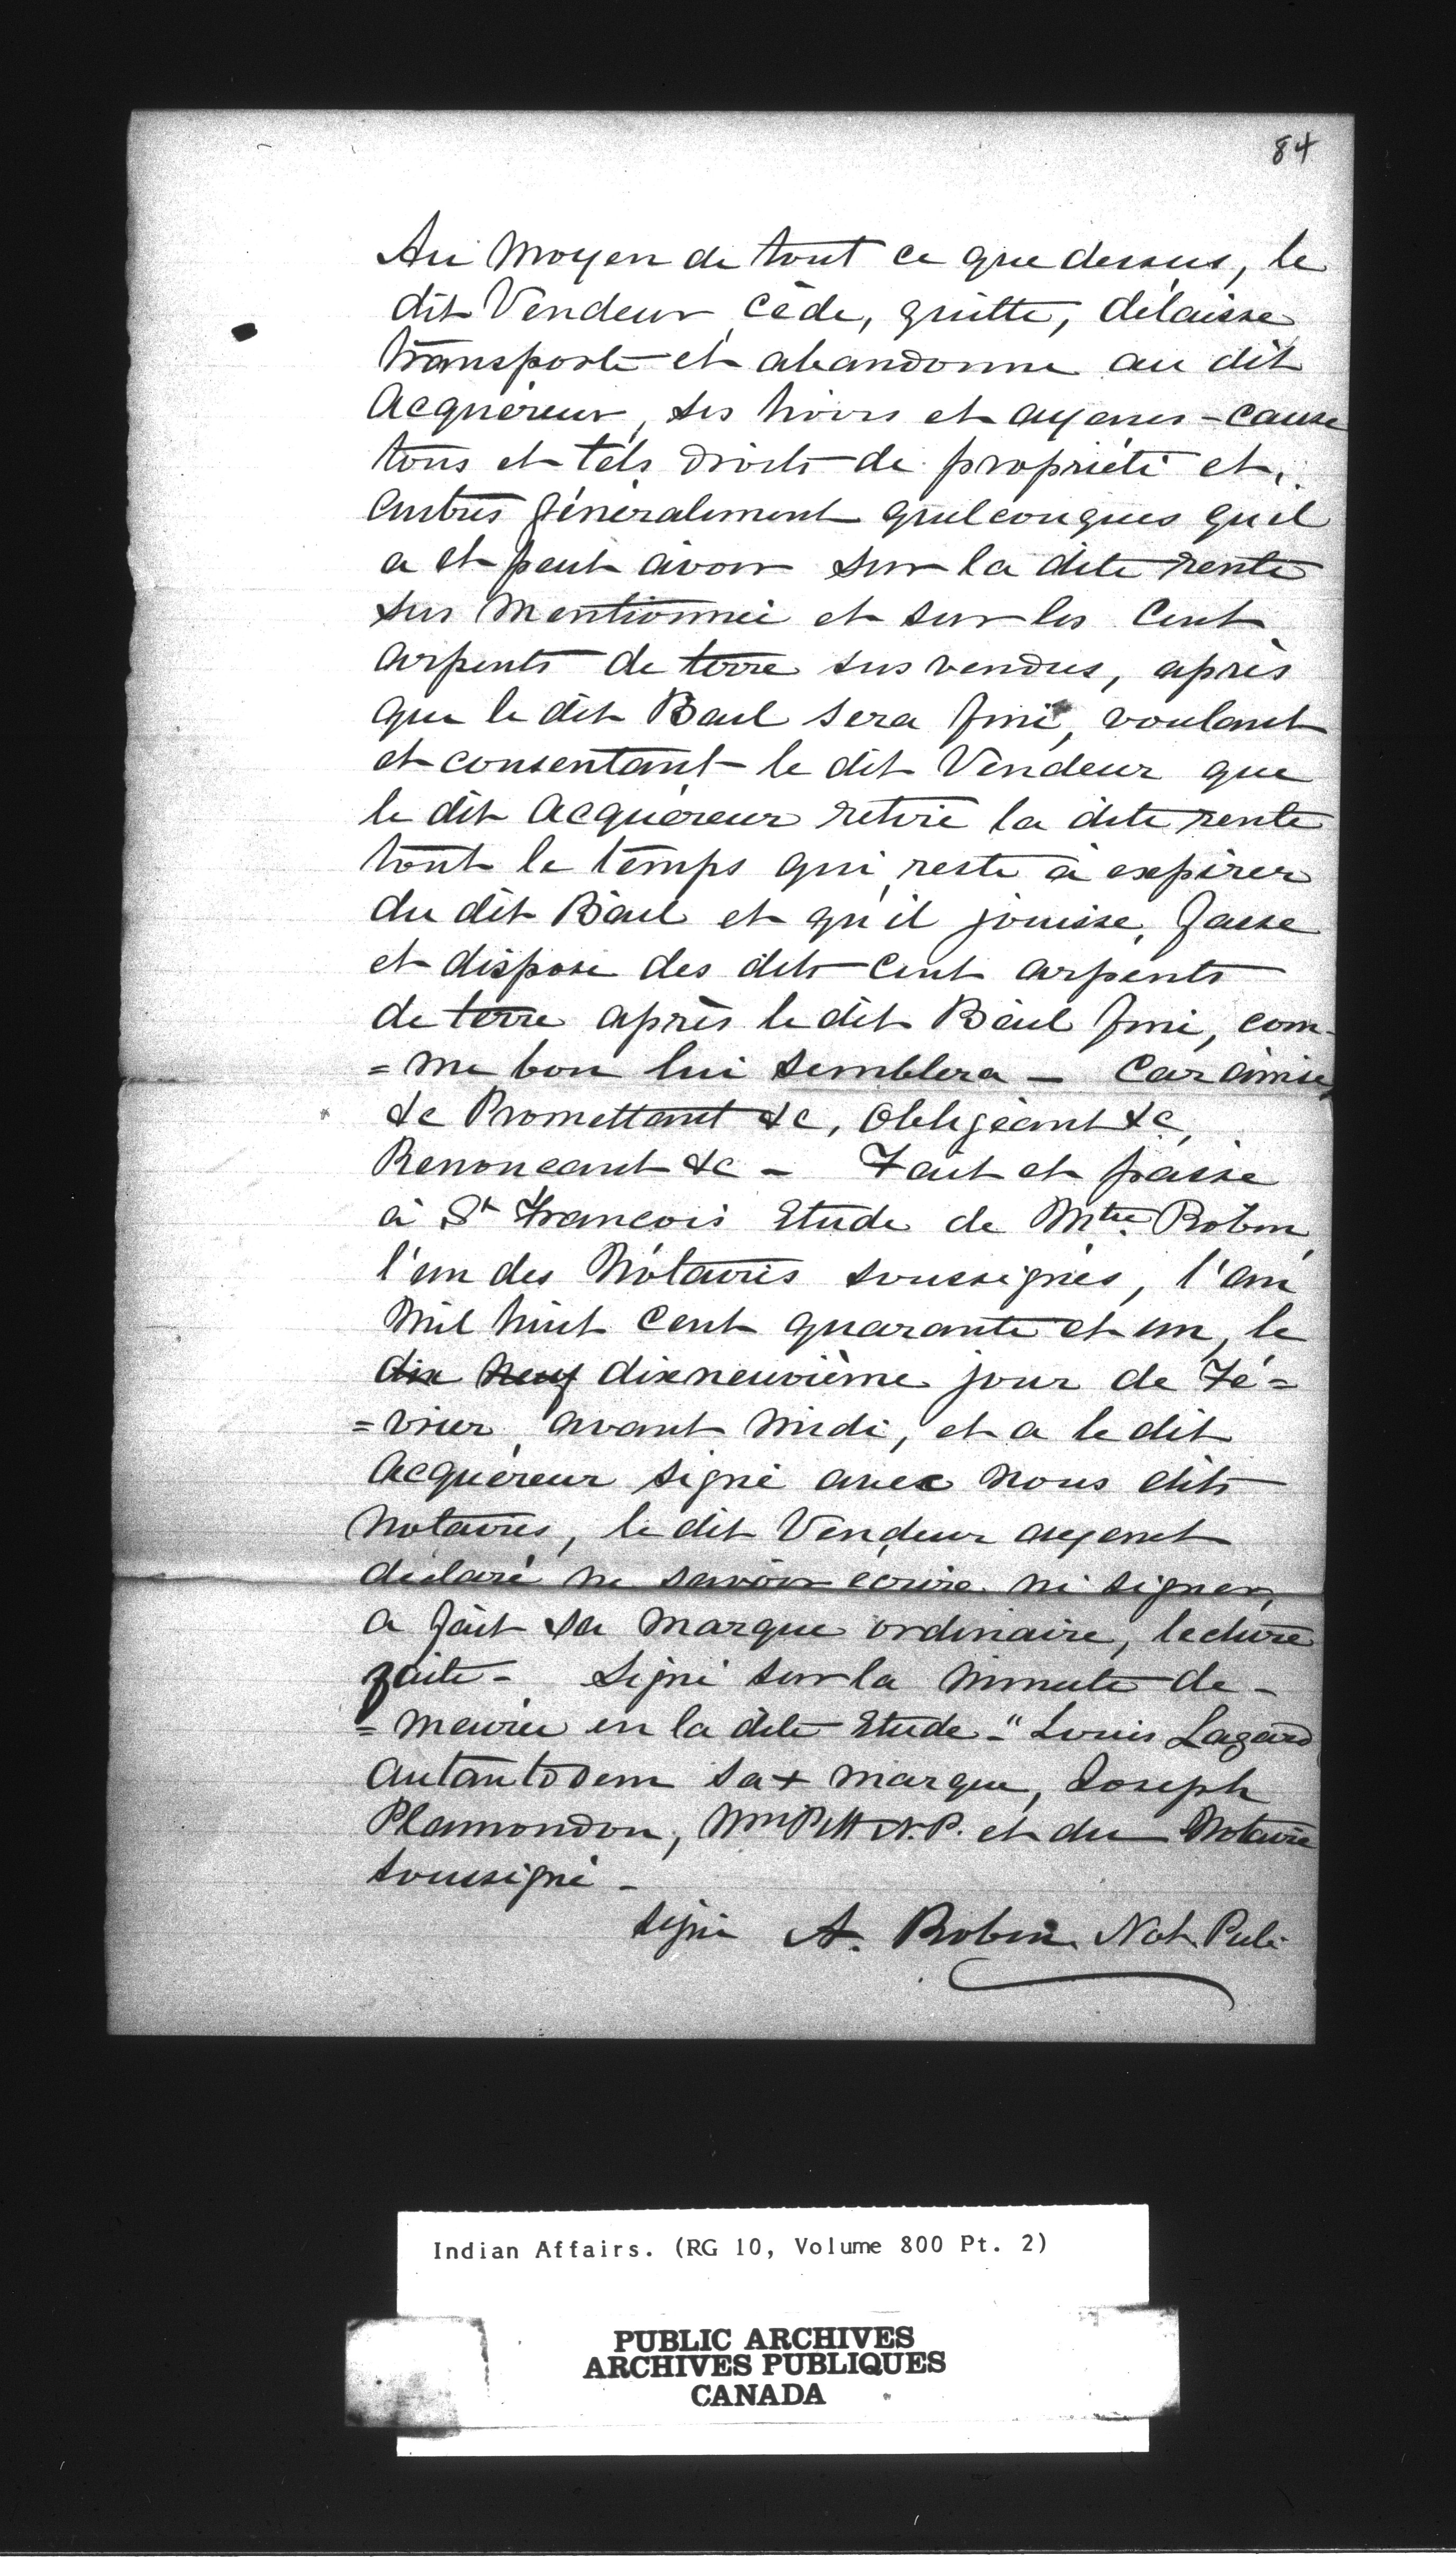 84
Au moyen de tout ce que dessus, le
dit Vendeur cède, quitte, délaisse
transporte et abandonne au dit
Acquéreur, ses hoirs et ayans-cause
tous et tels droits de propriété et
autres généralement quelconques qu'il
a et peut avoir sur la dite rente
sus mentionnée et sur les Cent
arpents de terre sus vendus, après
que le dit Bail sera fini, voulant
et consentant le dit Vendeur que
le dit Acquéreur retire la dite rente
tout le temps qui reste à expirer
du dit Bail et qu'il jouisse, fasse
et dispose des dits Cent arpents
de terre après le dit Bail fini, com-
=me bon lui semblera - Car ainsi
&c Promettant &c, Obligeant &c,
Renonçant &c - Fait et passé
à St François Etude de Mtre. Robin,
l'un des Notaires soussignés, l'an
Mil huit Cent quarante et un, le
dix neuf dixneuvième jour de Fé=
=vrier, avant midi, et a le dit
Acquéreur signé avec nous dits
Notaires, le dit Vendeur ayant
déclaré ne savoir écrire ni signer,
a fait sa marque ordinaire, lecture
faite - Signé sur la minute de-
=meurée en la dite Etude - " Louis Lazard
Autantodem sa + marque, Joseph
Plamondon, Wm Pitt N.P. et du Notaire
soussigné -
signé A. Robin Not. Pub.
Indian Affairs. (RG 10, Volume 800 Pt. 2)
PUBLIC ARCHIVES
ARCHIVES PUBLIQUES
CANADA